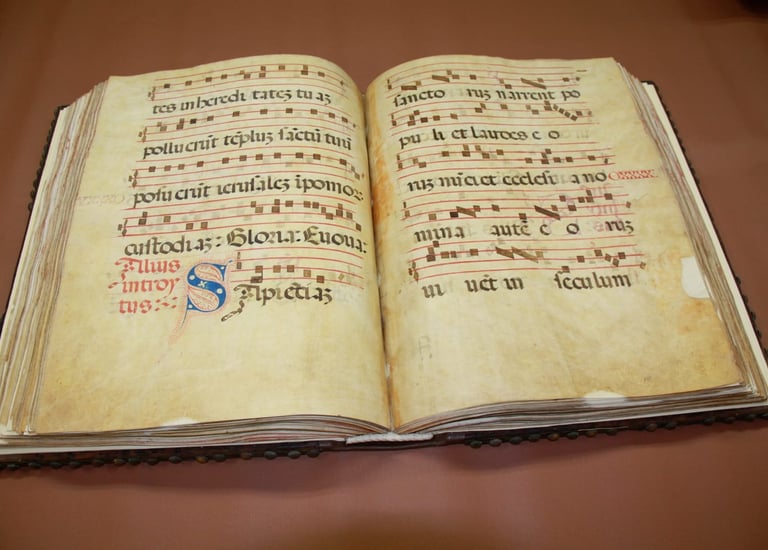 tes in heredi tateʒ tu aʒ
polluerūt tēpluʒ sāctū tuū
posuerūt ierusaleʒ ī pomoꝝ
custodiaʒ: Gloria: Euoua:
Alius
introy
tus:
Sapiētiaʒ
sancto ruʒ narrent po
pu li et laudes e o
ruʒ nūciet ecclesia no
mina autē e o ruʒ
ui uēt in seculum